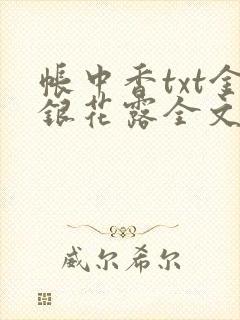 帐中香txt金
银花露全文
威尔希尔